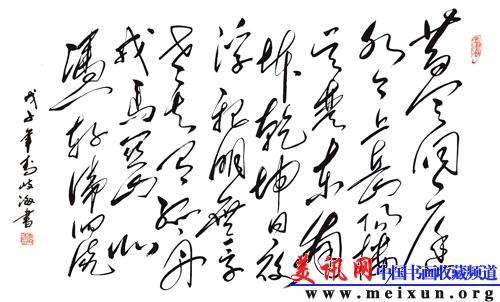 昔闻洞庭
水今上岳陽樓
吴楚東南
坼乾坤日夜
浮親朋無一字
老病有孤舟
戎馬關山北
憑軒涕泗流
戊子年岐海書
美讯网 中国书画收藏频道
www.meixun.org